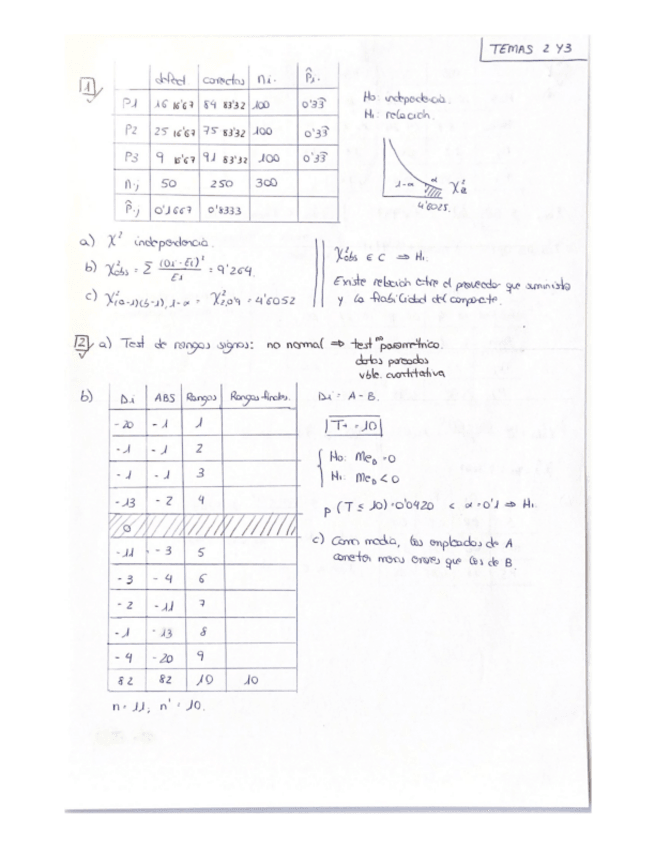 TEMAS 2 Y3
1
defect correctos ni. P̂i.
P1 16 16'67 84 83'32 100 0'33
P2 25 16'67 75 83'32 100 0'33
P3 9 16'67 91 83'32 100 0'33
n.j 50 250 300
P̂.j 0'1667 0'8333
Ho: independencia.
H1: relación.
1-α α X²
4'6025.
a) X² independencia.
b) X²obs = Σ (Oi-Ei)² / Ei = 9'264.
c) X²(a-1)(b-1), 1-α = X²2,0'9 = 4'6052
X²obs ∈ C ⇒ H1.
Existe relación entre el proveedor que suministra
y la fiabilidad del componente.
2 a) Test de rangos signos: no normal ⇒ test no paramétrico.
datos pareados
vble. cuantitativa
b) Di ABS Rangos Rangos finales.
- 20 - 1 1
- 1 - 1 2
- 1 - 1 3
- 13 - 2 4
0
- 11 - 3 5
- 3 - 4 6
- 2 - 11 7
- 1 - 13 8
- 4 - 20 9
82 82 10 10
n = 11, n' = 10.
Di = A - B.
T+ = 10
Ho: MeD = 0
H1: MeD < 0
p (T ≤ 10) = 0'0420 < α = 0'1 ⇒ H1.
c) Como media, los empleados de A
cometen menos errores que los de B.